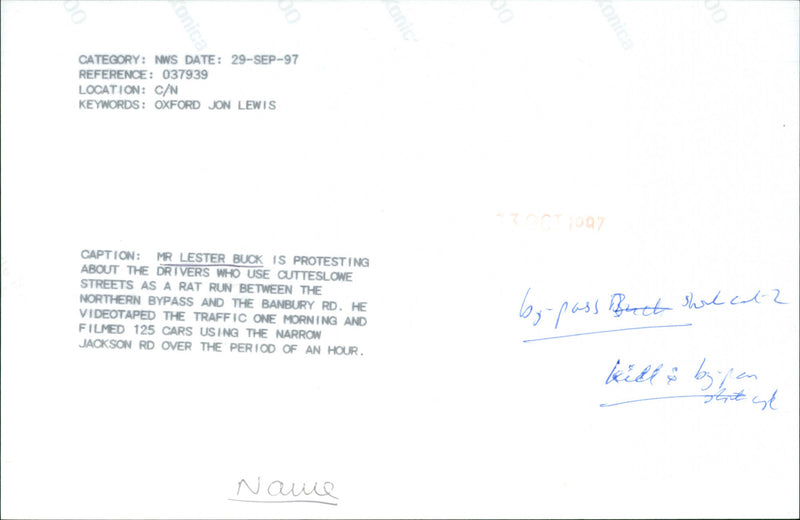 Konica
CATEGORY: NWS DATE: 29-SEP-97
REFERENCE: 037939
LOCATION: C/N
KEYWORDS: OXFORD JON LEWIS
OCT 1997
CAPTION: MR LESTER BUCK IS PROTESTING
ABOUT THE DRIVERS WHO USE CUTTESLOWE
STREETS AS A RAT RUN BETWEEN THE
NORTHERN BYPASS AND THE BANBURY RD. HE
VIDEOTAPED THE TRAFFIC ONE MORNING AND
FILMED 125 CARS USING THE NARROW
JACKSON RD OVER THE PERIOD OF AN HOUR.
by-pass Buck
by-pass
Name